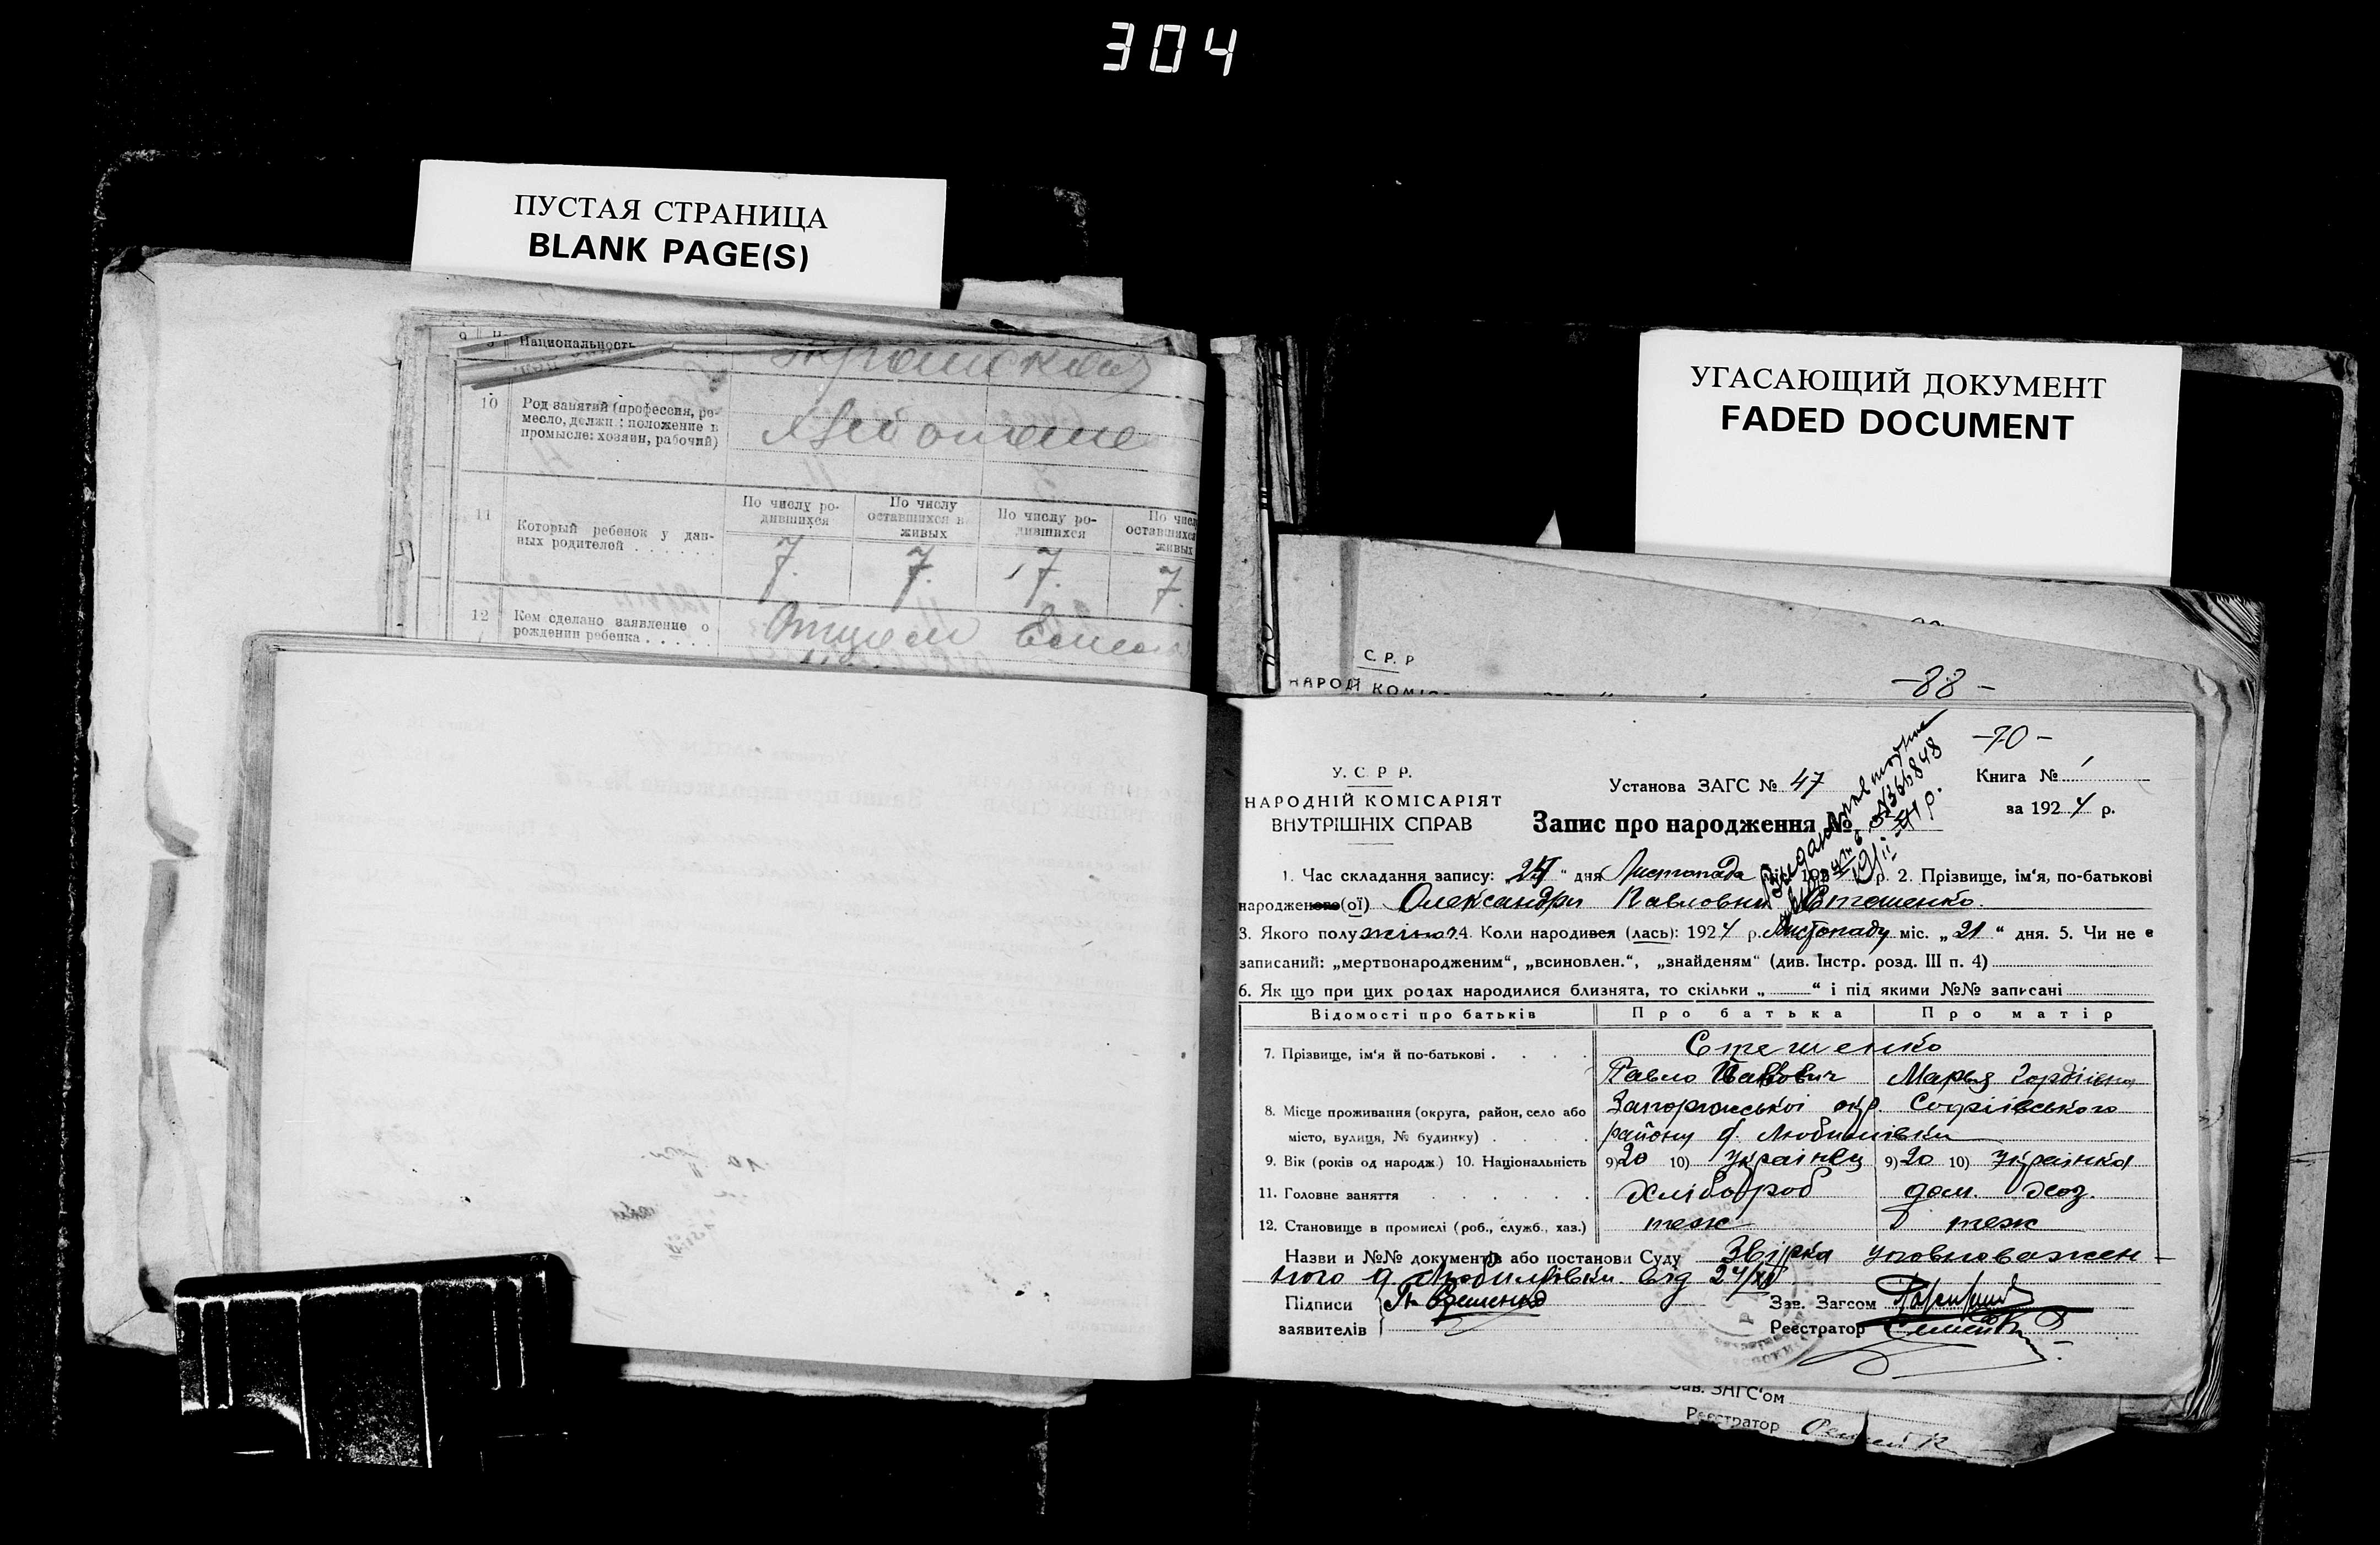 304
ПУСТАЯ СТРАНИЦА
BLANK PAGE(S)
9 Национальность
10 Род занятий (профессия, ре-
месло, должн.: положение в
промысле: хозяин, рабочий)
По числу ро-
дившихся
По числу
оставшихся в
живых
По числу ро-
дившихся
По числ
оставшихся
живых
11 Который ребенок у дан-
ных родителей . . . . . . .
7. 7. 7. 7.
12 Кем сделано заявление о
рождении ребенка . . . . .
Отцем
УГАСАЮЩИЙ ДОКУМЕНТ
FADED DOCUMENT
С. Р. Р
НАРОД КОМІС
-88-
-70-
У. С. Р. Р.
НАРОДНІЙ КОМІСАРІЯТ
ВНУТРІШНІХ СПРАВ
Установа ЗАГС № 47
Книга № 1
за 1924 р.
Запис про народження №
1. Час складання запису: „24“ дня Листопада 192 р. 2. Прізвище, ім‘я, по-батькові
народженого(ої) Олександри Павловни Стешенко
3. Якого полу жіноч. 4. Коли народився (лась): 1924 р. Листопаду міс. „21“ дня. 5. Чи не є
записаний: „мертвонародженим“, „всиновлен.“, „знайденям“ (див. Інстр. розд. III п. 4)
6. Як що при цих родах народилися близнята, то скільки „ “ і під якими №№ записані
Відомості про батьків Про батька Про матір
7. Прізвище, ім‘я й по-батькові . . . . Стешенко
Павло Марья Гордіївна
8. Місце проживання (округа, район, село або Запорожської окр. Софіївського
місто, вулиця, № будинку) . . . . району с. Любимівки
9. Вік (років од народж.) 10. Національність 9) 20 10) Українец 9) 20 10) Українка
11. Головне заняття . . . . . . Хлібороб дом. хоз.
12. Становище в промислі (роб., служб., хаз.) теж теж
Назви и №№ документів або постанови Суду Звірка уповноважен-
ного с. Любимівки від 24/XI
Підписи
заявителів П. Стешенко
Зав. Загсом
Реєстратор
Зав. ЗАГС‘ом
Реєстратор